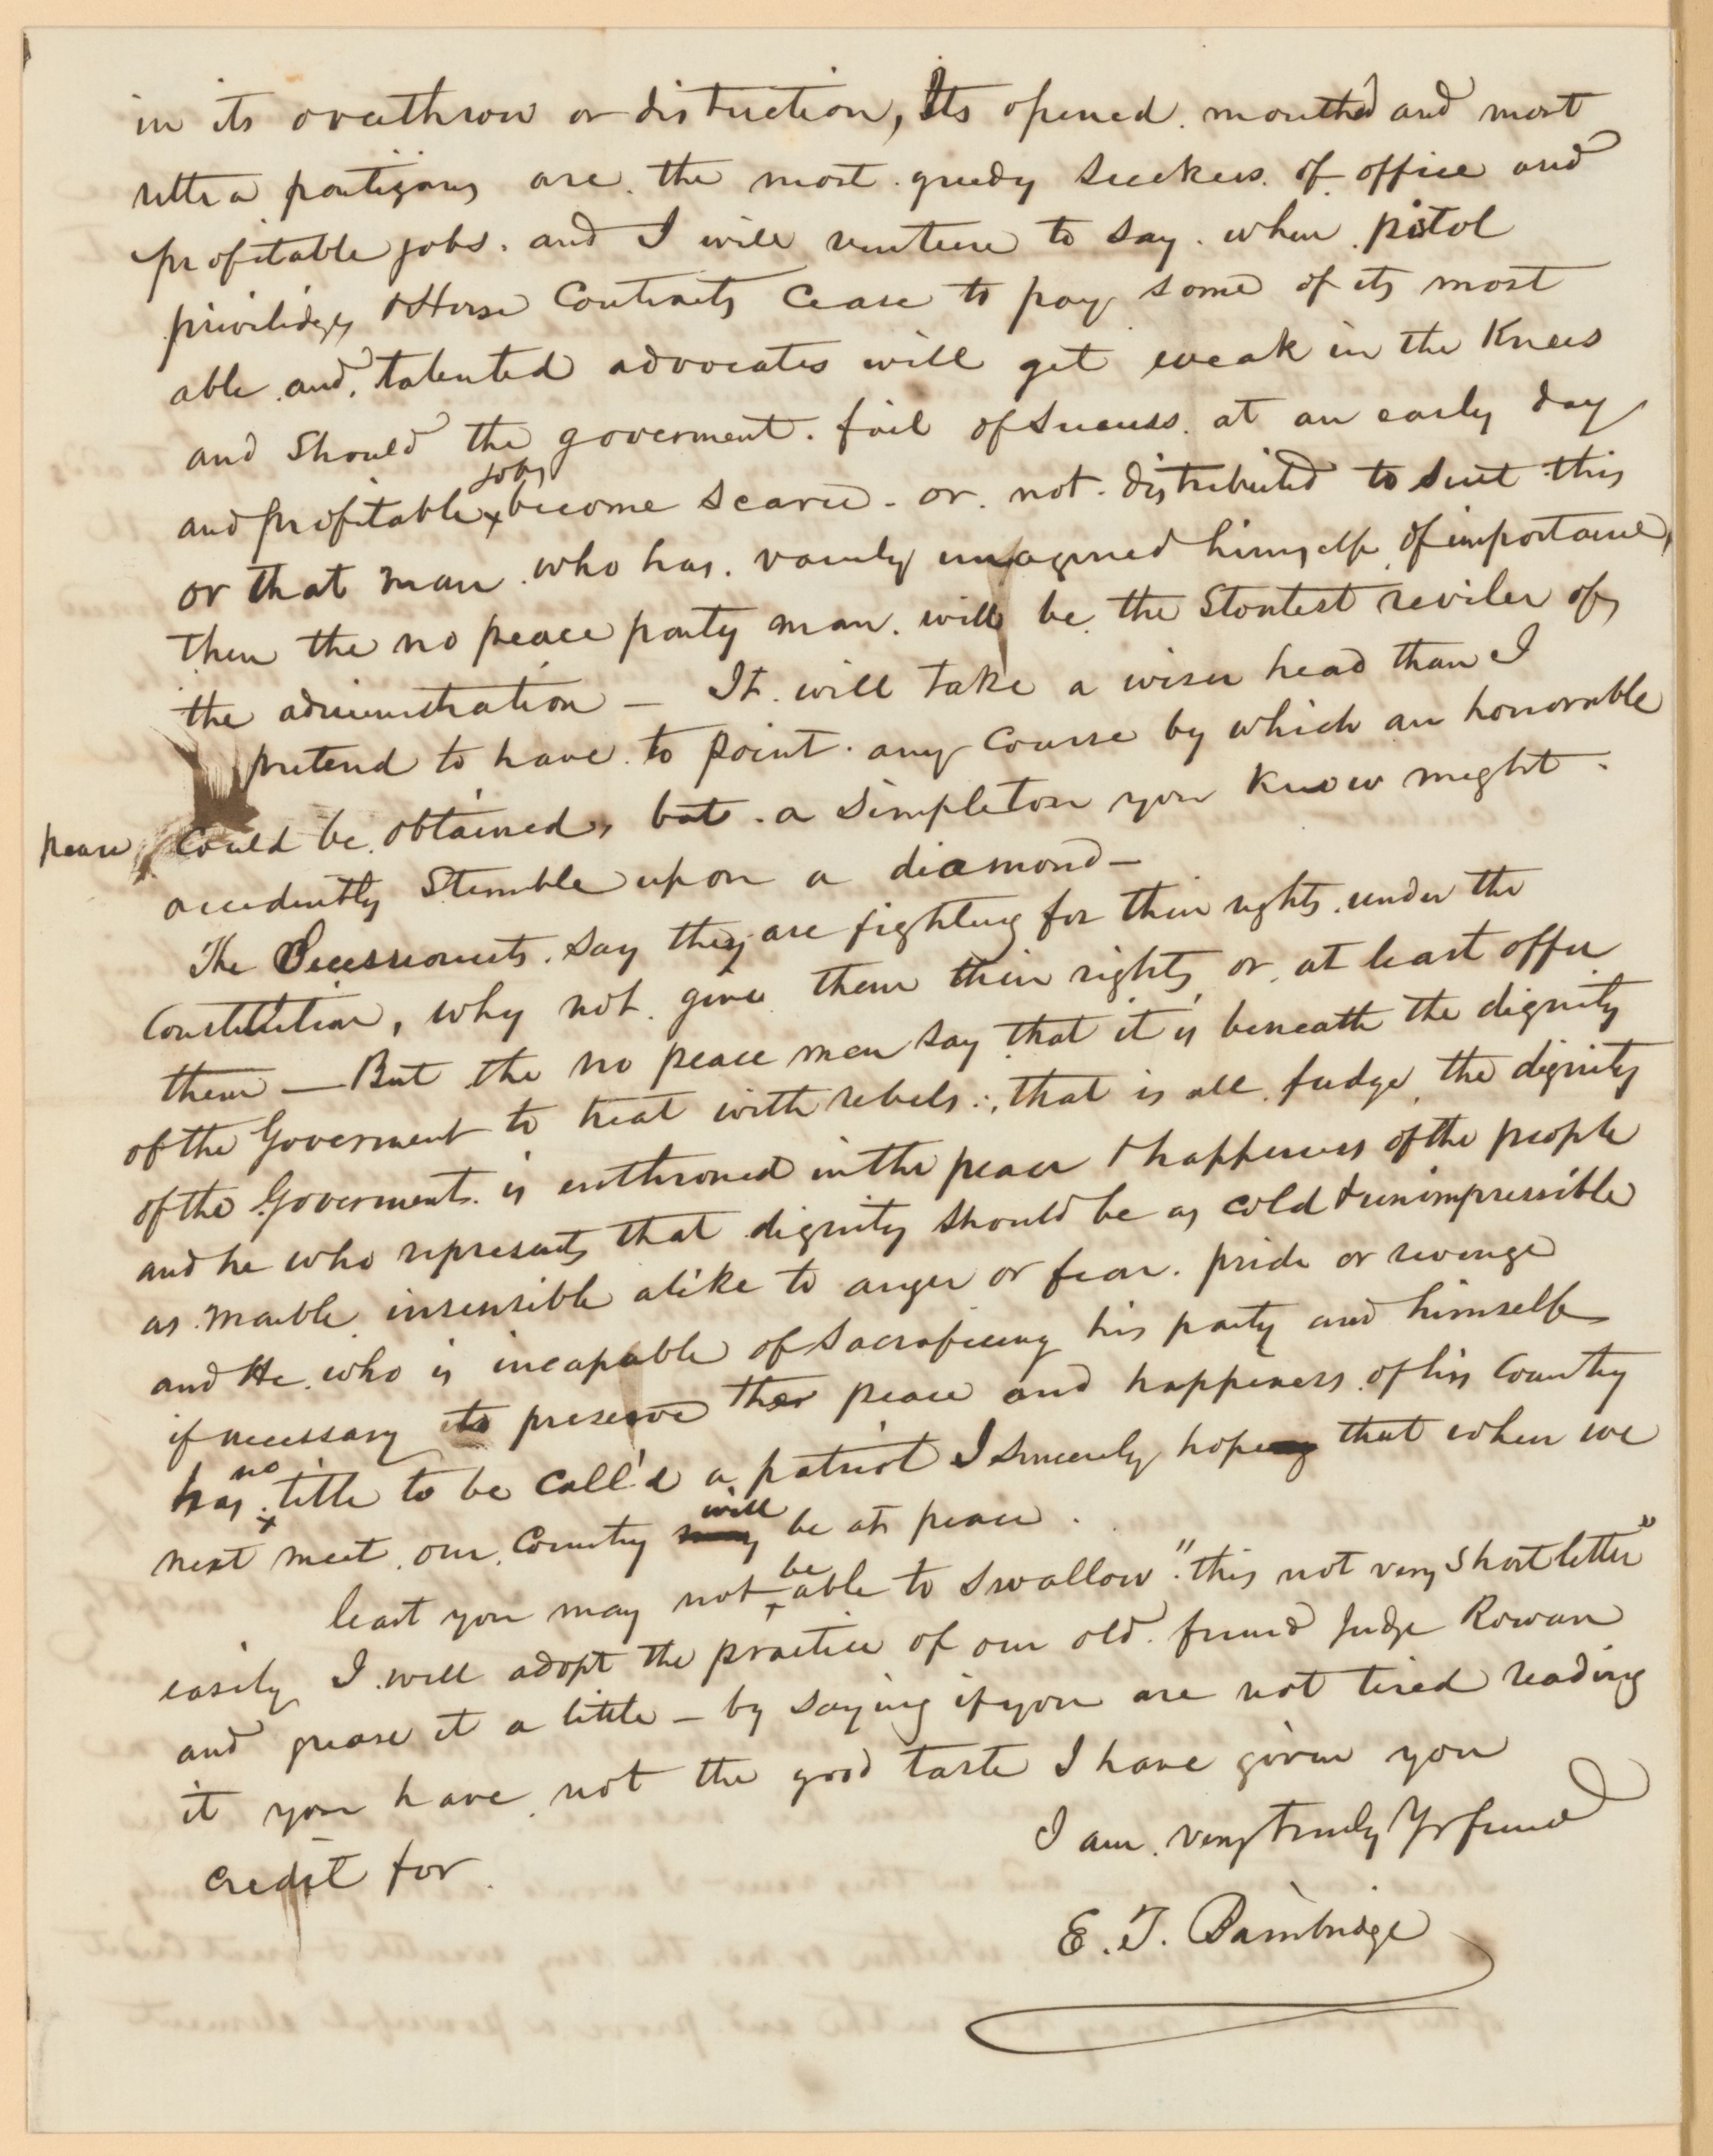 in its overthrow or distruction, Its opened mouthed and most
ultra partizans are the most greedy seekers of office and
profitable jobs. and I will venture to say. when pistol
priviledges & Horse Contracts Cease to pay some of its most
able and talented advocates will get weak in the Knees
and Should the goverment. fail of Success. at an early day
and profitable jobs become scarce - or not distributed to suit this
or that man who has vainly imagined himself of importance,
then the no peace party man will be the Stoutest reviler of
the administration — It will take a wiser head than I
pretend to have to point any Course by which an honorable
peace Could be obtained, but a Simpleton you Know might
accidently Stumble upon a diamond —
The Secessionists say they are fighting for their rights under the
Constitution, why not give them their rights or at least offer
them — But the no peace men say that it is beneath the dignity
of the Goverment to treat with rebels; that is all fudge, the dignity
of the Goverment is enthroned in the peace & happiness of the people
and he who represents that dignity should be as cold & unimpressible
as marble insensible alike to anger or fear. pride or revenge
and He who is incapable of Sacraficeing his party and himself
if necessary to preserve the peace and happiness of his Country
has no title to be call'd a patriot I sincerely hope that when we
next meet our Country will be at peace.
least you may not be able to swallow "this not very short letter"
easily I will adopt the practice of our old friend Judge Rowan
and grease it a little — by saying if you are not tired reading
it you have not the good taste I have given you
credit for.
I am very truly Yr friend
E. T. Bainbridge